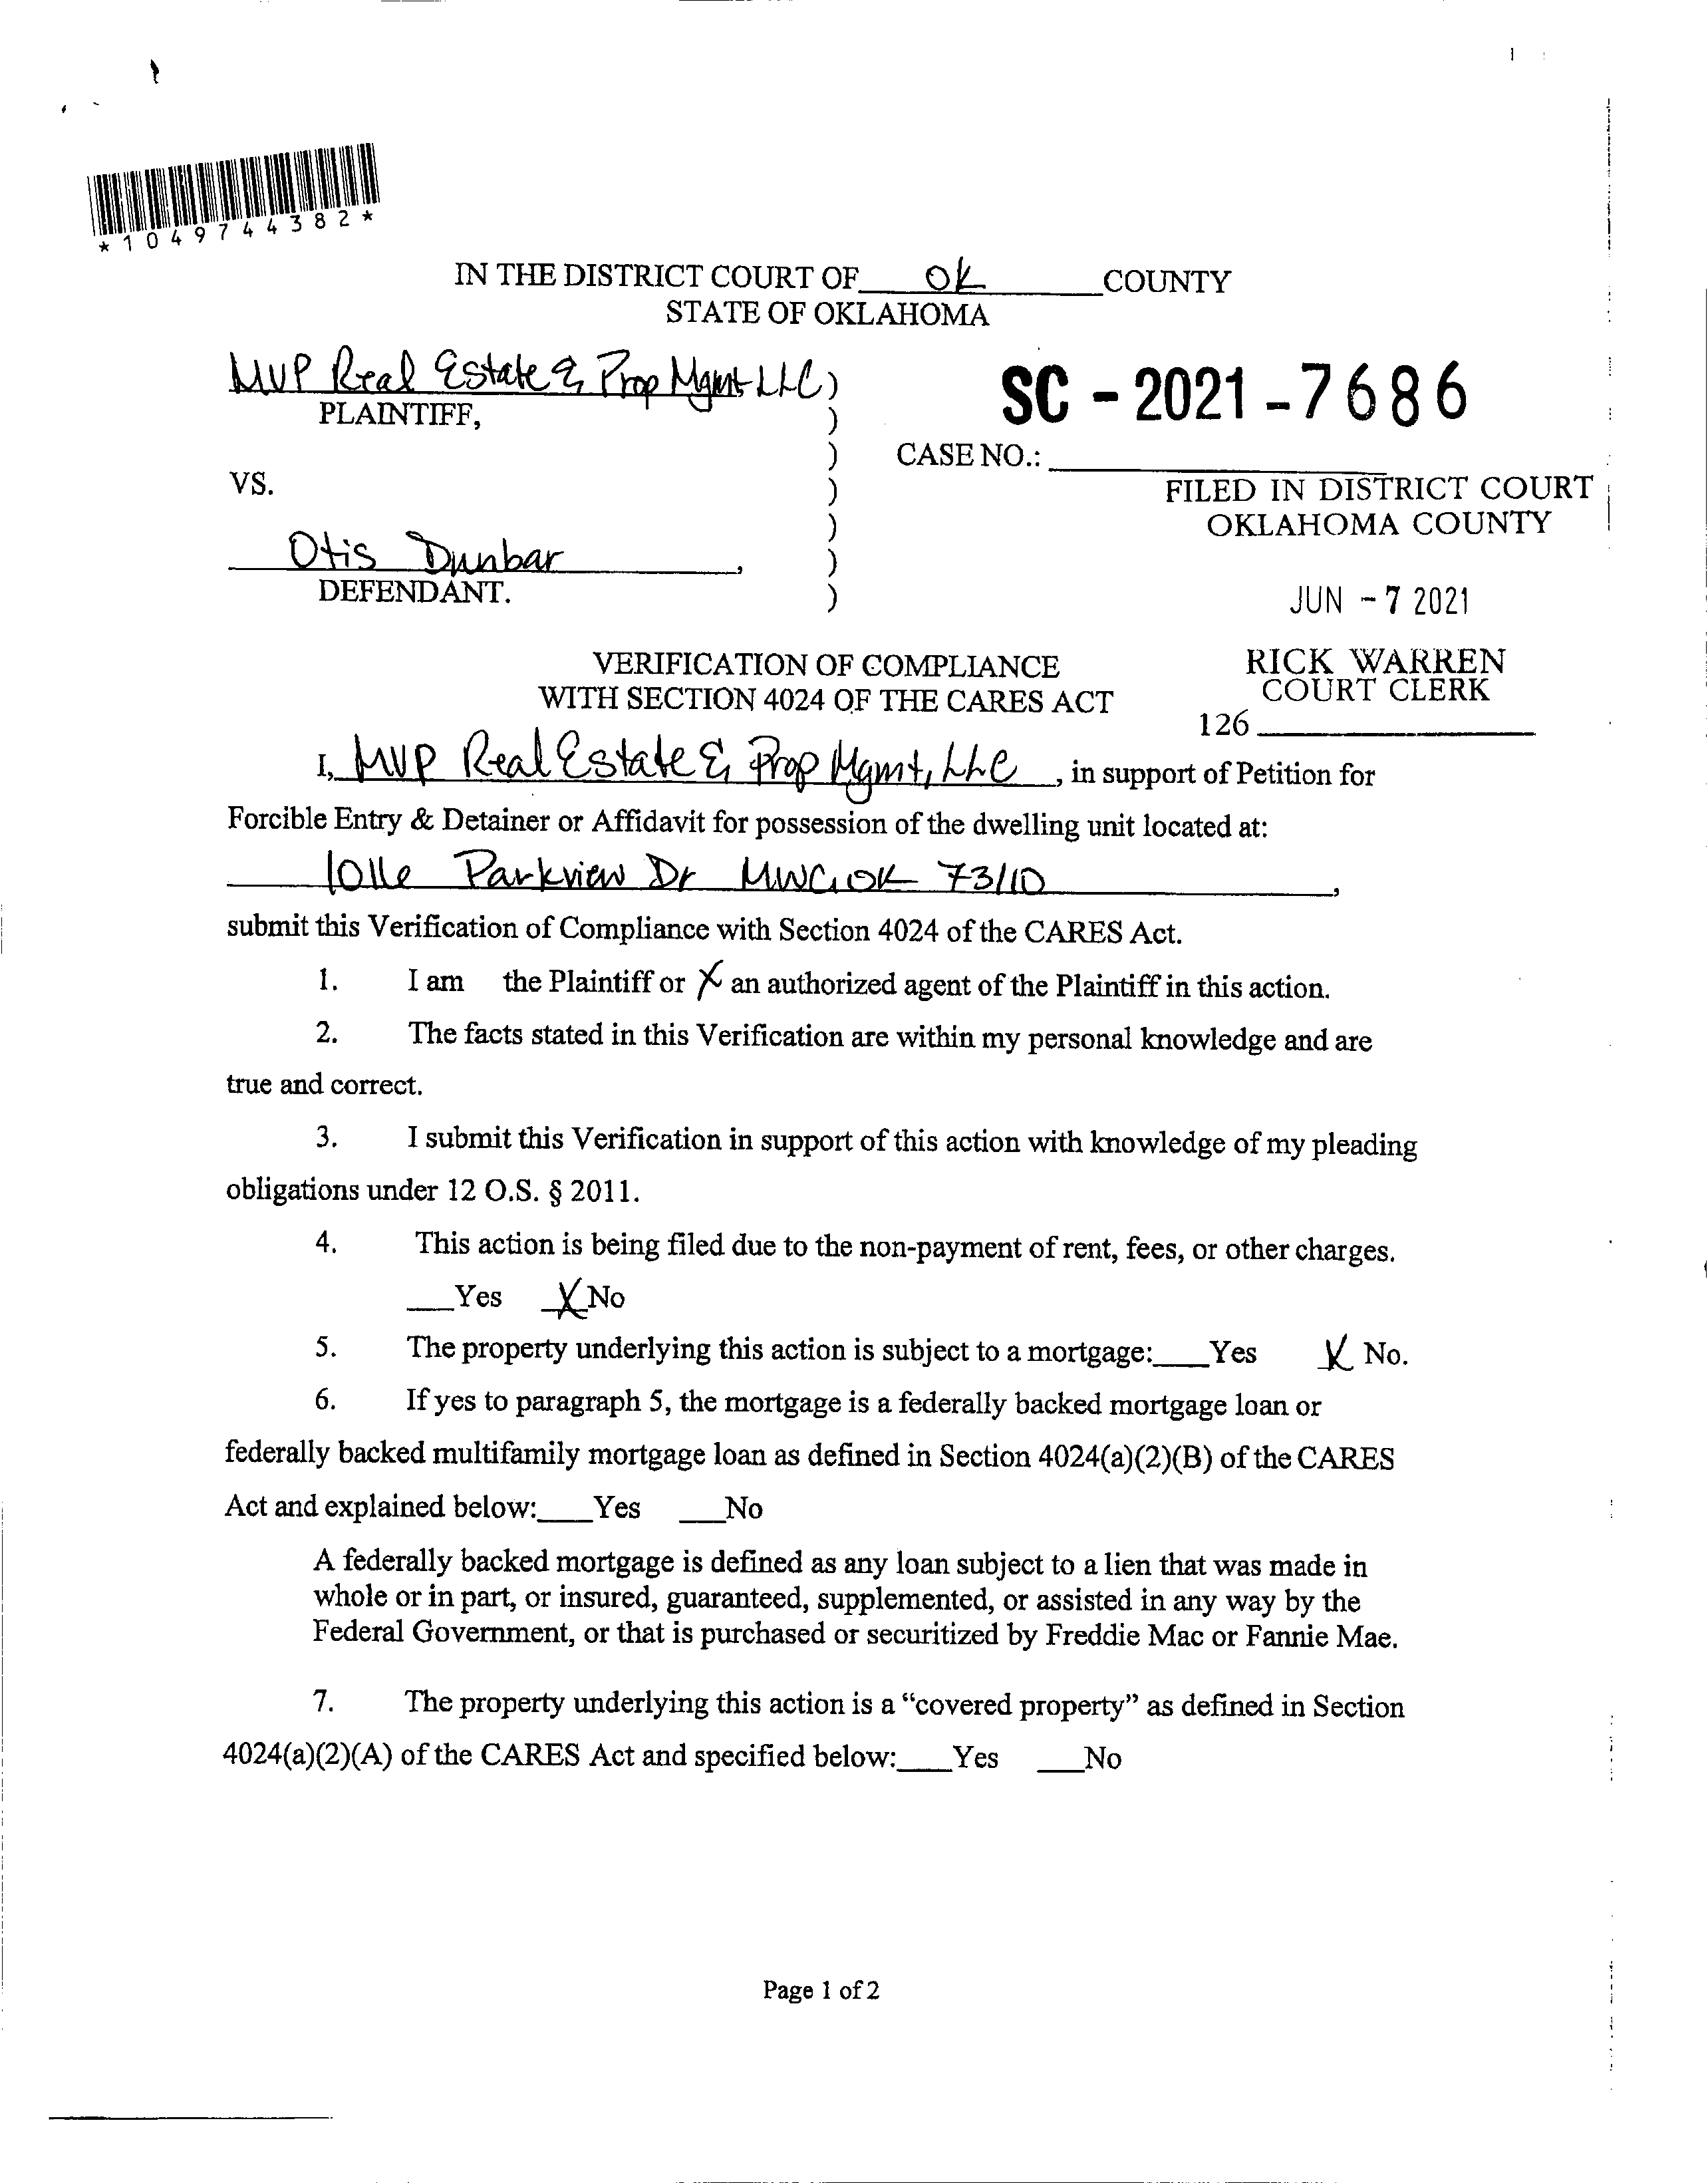 *1049744382*
IN THE DISTRICT COURT OF OK COUNTY
STATE OF OKLAHOMA
MVP Real Estate & Prop Mgmt LLC )
PLAINTIFF, )
SC - 2021 - 7686
) CASE NO.:
VS. )
FILED IN DISTRICT COURT
) OKLAHOMA COUNTY
Otis Dunbar, )
DEFENDANT. )
JUN - 7 2021
VERIFICATION OF COMPLIANCE
WITH SECTION 4024 OF THE CARES ACT
RICK WARREN
COURT CLERK
126
I, MVP Real Estate & Prop Mgmt, LLC, in support of Petition for
Forcible Entry & Detainer or Affidavit for possession of the dwelling unit located at:
Parkview Dr MWC, OK 73110,
submit this Verification of Compliance with Section 4024 of the CARES Act.
1. I am the Plaintiff or X an authorized agent of the Plaintiff in this action.
2. The facts stated in this Verification are within my personal knowledge and are
true and correct.
3. I submit this Verification in support of this action with knowledge of my pleading
obligations under 12 O.S. § 2011.
4. This action is being filed due to the non-payment of rent, fees, or other charges.
___Yes X No
5. The property underlying this action is subject to a mortgage:___Yes X No.
6. If yes to paragraph 5, the mortgage is a federally backed mortgage loan or
federally backed multifamily mortgage loan as defined in Section 4024(a)(2)(B) of the CARES
Act and explained below:___Yes ___No
A federally backed mortgage is defined as any loan subject to a lien that was made in
whole or in part, or insured, guaranteed, supplemented, or assisted in any way by the
Federal Government, or that is purchased or securitized by Freddie Mac or Fannie Mae.
7. The property underlying this action is a “covered property” as defined in Section
4024(a)(2)(A) of the CARES Act and specified below:___Yes ___No
Page 1 of 2